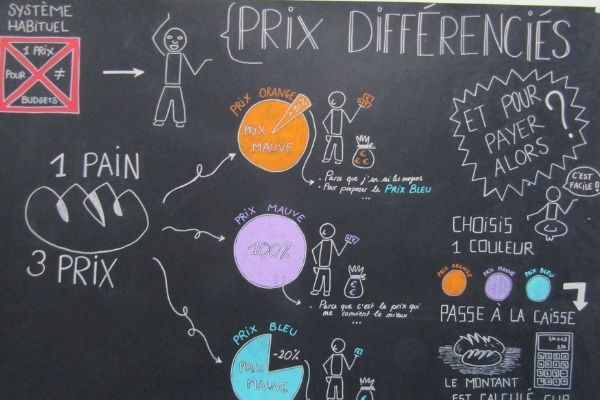 SYSTÈME
HABITUEL
1 PRIX
POUR ≠
BUDGETS
PRIX DIFFÉRENCIÉS
1 PAIN
3 PRIX
PRIX ORANGE
PRIX
MAUVE
Parce que j'en ai les moyens
Pour proposer le PRIX BLEU
...
PRIX MAUVE
100%
€ €
Parce que c'est le prix qui
me convient le mieux
...
PRIX BLEU
-20%
PRIX
MAUVE
ET POUR
PAYER
ALORS
?
C'EST
FACILE!
CHOISIS
1 COULEUR
PRIX ORANGE
PRIX MAUVE
PRIX BLEU
PASSE À LA CAISSE
LE MONTANT
EST CALCULÉ SUR